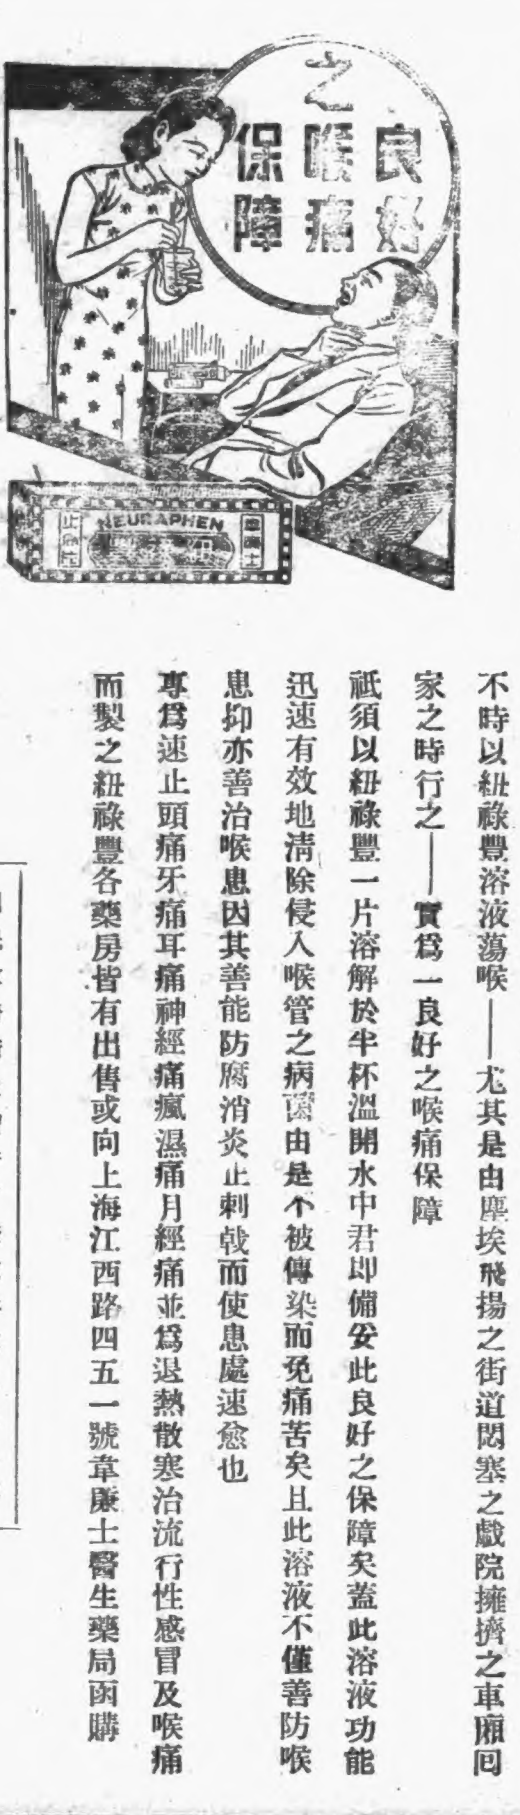 良好
之喉痛
保障
韋廉士
NEURAPHEN
止痛片
不時以紐祿豐溶液蕩喉——尤其是由塵埃飛揚之街道悶塞之戲院擁擠之車廂回
家之時行之——實爲一良好之喉痛保障
祗須以紐祿豐一片溶解於半杯溫開水中君卽備妥此良好之保障矣蓋此溶液功能
迅速有效地清除侵入喉管之病菌由是不被傳染而免痛苦矣且此溶液不僅善防喉
患抑亦善治喉患因其善能防腐消炎止刺戟而使患處速愈也
專爲速止頭痛牙痛耳痛神經痛瘋濕痛月經痛並爲退熱散寒治流行性感冒及喉痛
而製之紐祿豐各藥房皆有出售或向上海江西路四五一號韋廉士醫生藥局函購